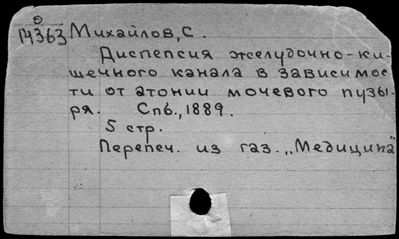 5
14363 Михайлов, С.
Диспепсия желудочно-ки-
шечного канала в зависимос
ти от атонии мочевого пузы-
ря. Спб., 1889.
5 стр.
Перепеч. из газ. „Медицина"